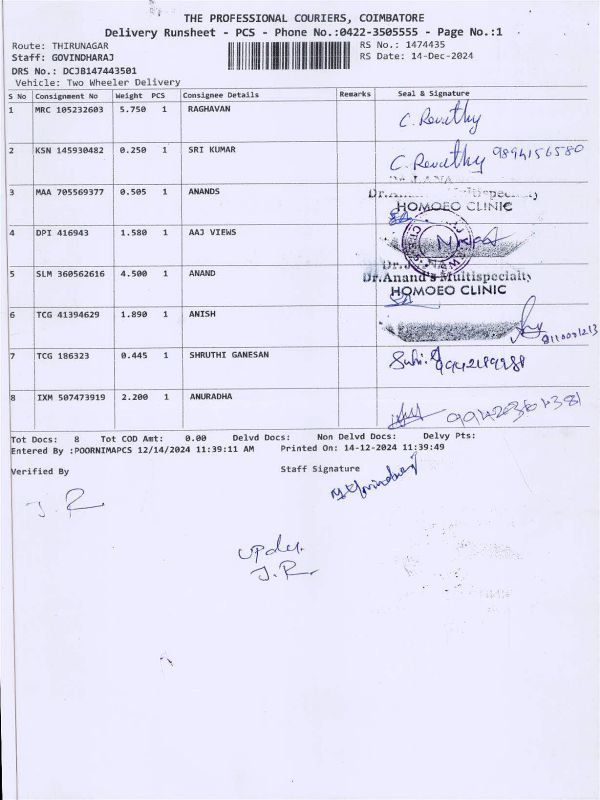 THE PROFESSIONAL COURIERS, COIMBATORE
Delivery Runsheet - PCS - Phone No.:0422-3505555 - Page No.:1
Route: THIRUNAGAR RS No.: 1474435
Staff: GOVINDHARAJ RS Date: 14-Dec-2024
DRS No.: DCJB147443501
Vehicle: Two Wheeler Delivery
S No Consignment No Weight PCS Consignee Details Remarks Seal & Signature
1 MRC 105232603 5.750 1 RAGHAVAN C. Revathy
2 KSN 145930482 0.250 1 SRI KUMAR C. Revathy 9894156580
3 MAA 705569377 0.505 1 ANANDS
HOMOEO CLINIC
4 DPI 416943 1.580 1 AAJ VIEWS
5 SLM 360562616 4.500 1 ANAND Dr.Anand's Multispecialty
HOMOEO CLINIC
6 TCG 41394629 1.890 1 ANISH
7 TCG 186323 0.445 1 SHRUTHI GANESAN
8 IXM 507473919 2.200 1 ANURADHA
Tot Docs: 8 Tot COD Amt: 0.00 Delvd Docs: Non Delvd Docs: Delvy Pts:
Entered By :POORNIMAPCS 12/14/2024 11:39:11 AM Printed On: 14-12-2024 11:39:49
Verified By Staff Signature
J. R
J. R.